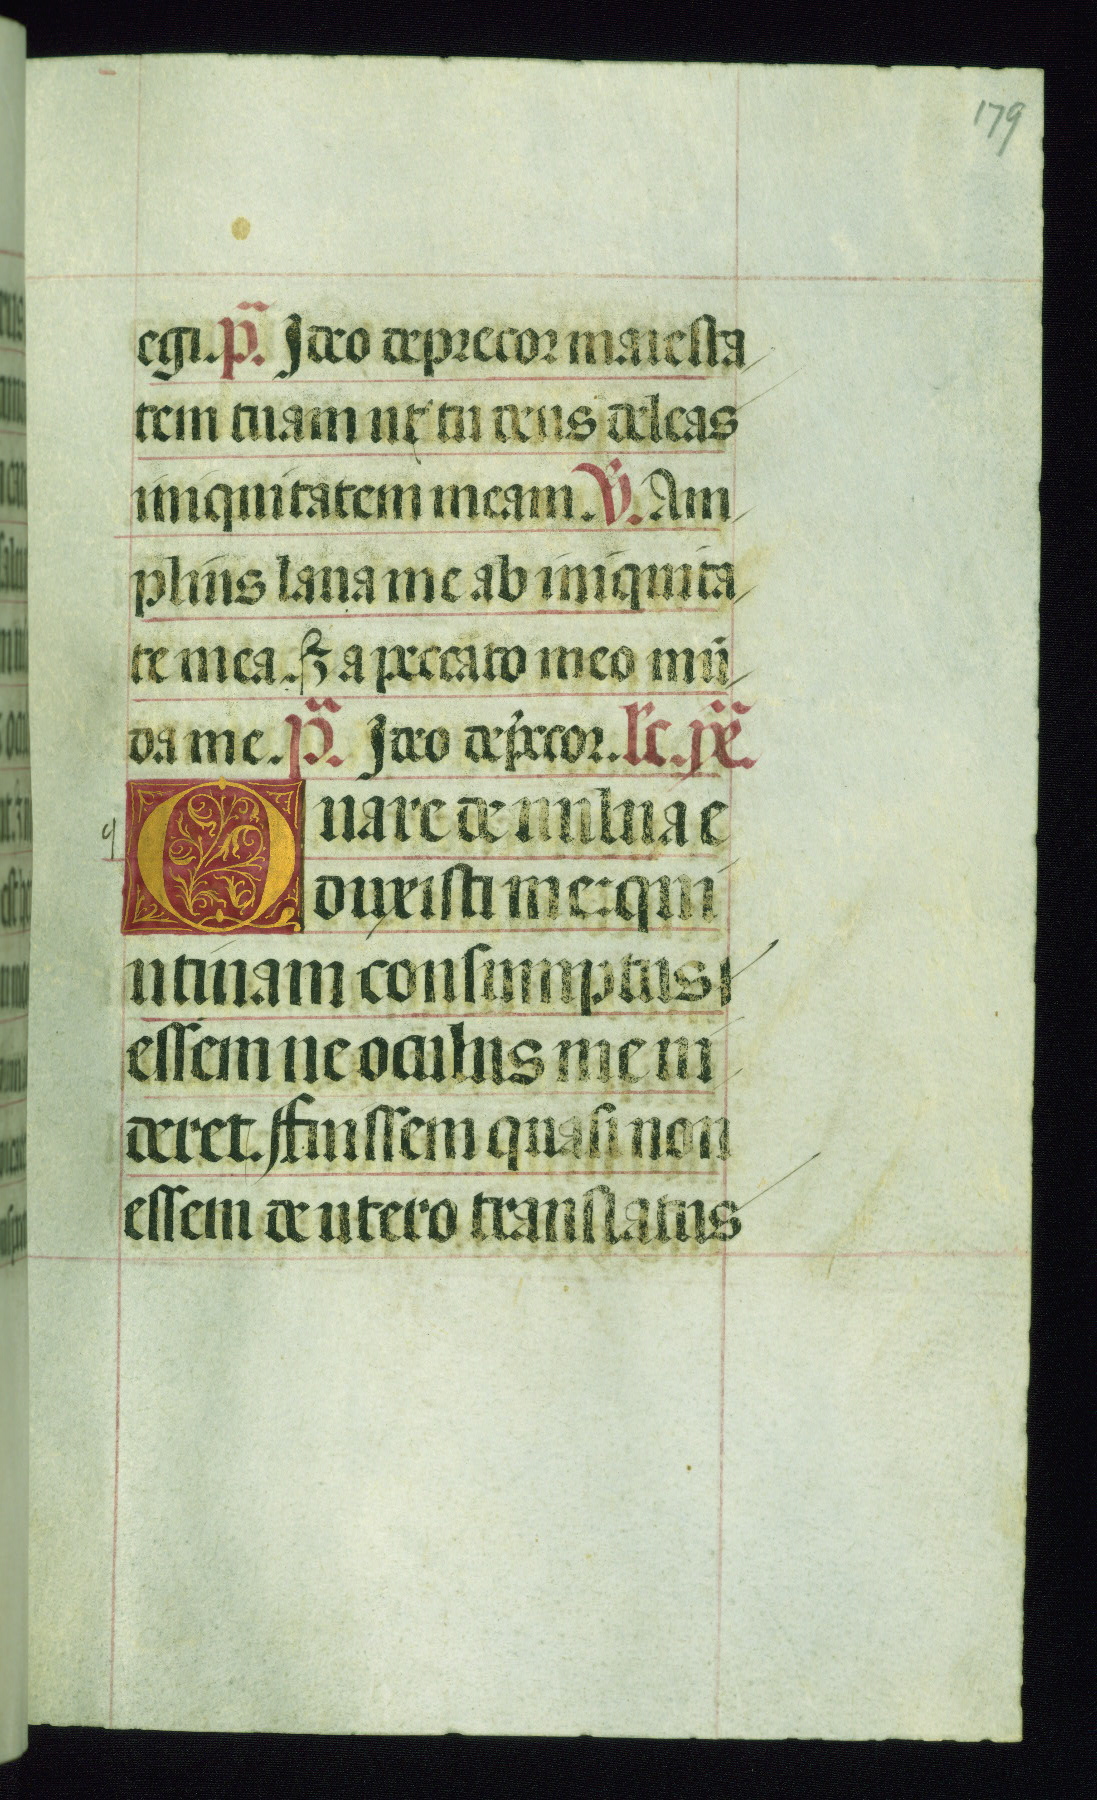 179
egi. p̄. Ideo deprecor maiesta
tem tuam ut tu deus deleas
iniquitatem meam. V̄. Am
plius laua me ab iniquita
te mea. ⁊ a peccato meo mū
da me. p̄. Ideo dep̄cor. lc̄. ix̄.
Quare de uulua e
q
duxisti me: qui
utinam consumptus
essem ne oculus me ui
deret. ffuissem quasi non
essem de utero translatus